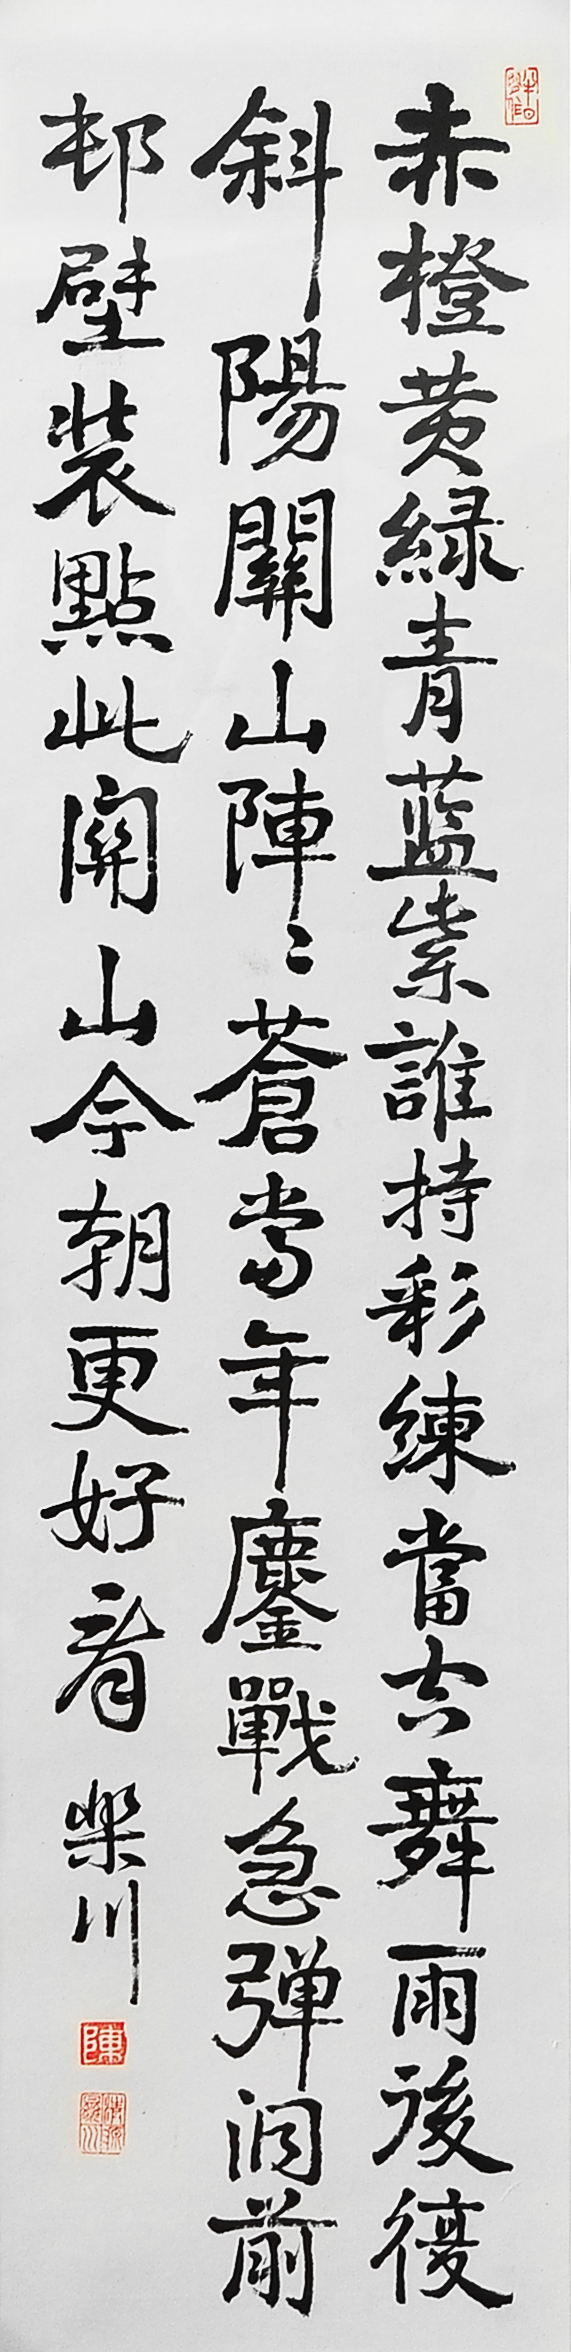 赤橙黄緑青蓝紫誰持彩練當空舞雨後復
斜陽關山陣〻蒼當年鏖戰急弹洞前
邨壁装點此関山今朝更好看 榘川
陳